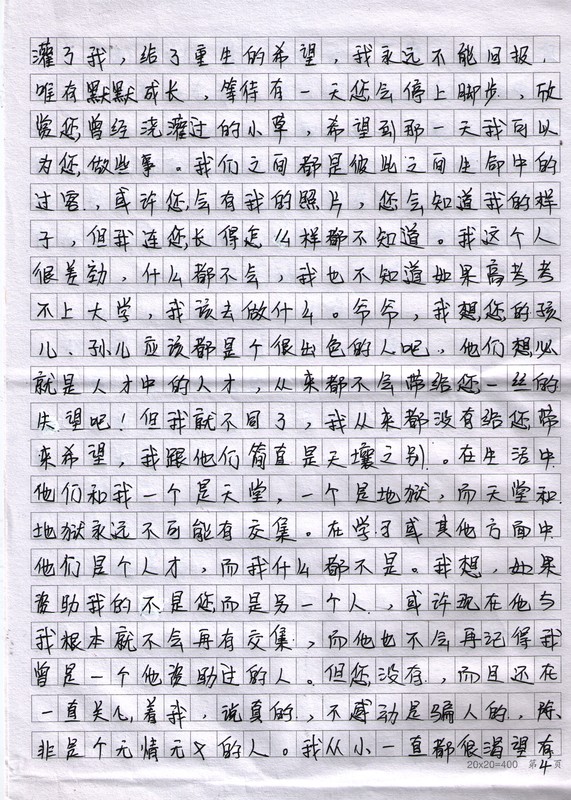 灌了我，给了重生的希望，我永远不能回报，
唯有默默成长，等待有一天您会停上脚步，欣
赏您曾经浇灌过的小草，希望到那一天我可以
为您做些事。我们之间都是彼此之间生命中的
过客，或许您会有我的照片，您会知道我的样
子，但我连您长得怎么样都不知道。我这个人
很差劲，什么都不会，我也不知道如果高考考
不上大学，我该去做什么。爷爷，我想您的孩
儿、孙儿应该都是个很出色的人吧，他们想必
就是人才中的人才，从来都不会带给您一丝的
失望吧！但我就不同了，我从来都没有给您带
来希望，我跟他们简直是天壤之别。在生活中
他们和我一个是天堂，一个是地狱，而天堂和
地狱永远不可能有交集。在学习或其他方面中
他们是个人才，而我什么都不是。我想，如果
资助我的不是您而是另一个人，或许现在他与
我根本就不会再有交集，而他也不会再记得我
曾是一个他资助过的人。但您没有，而且还在
一直关心着我，说真的，不感动是骗人的，除
非是个无情无义的人。我从小一直都很渴望有
20x20=400 第4页